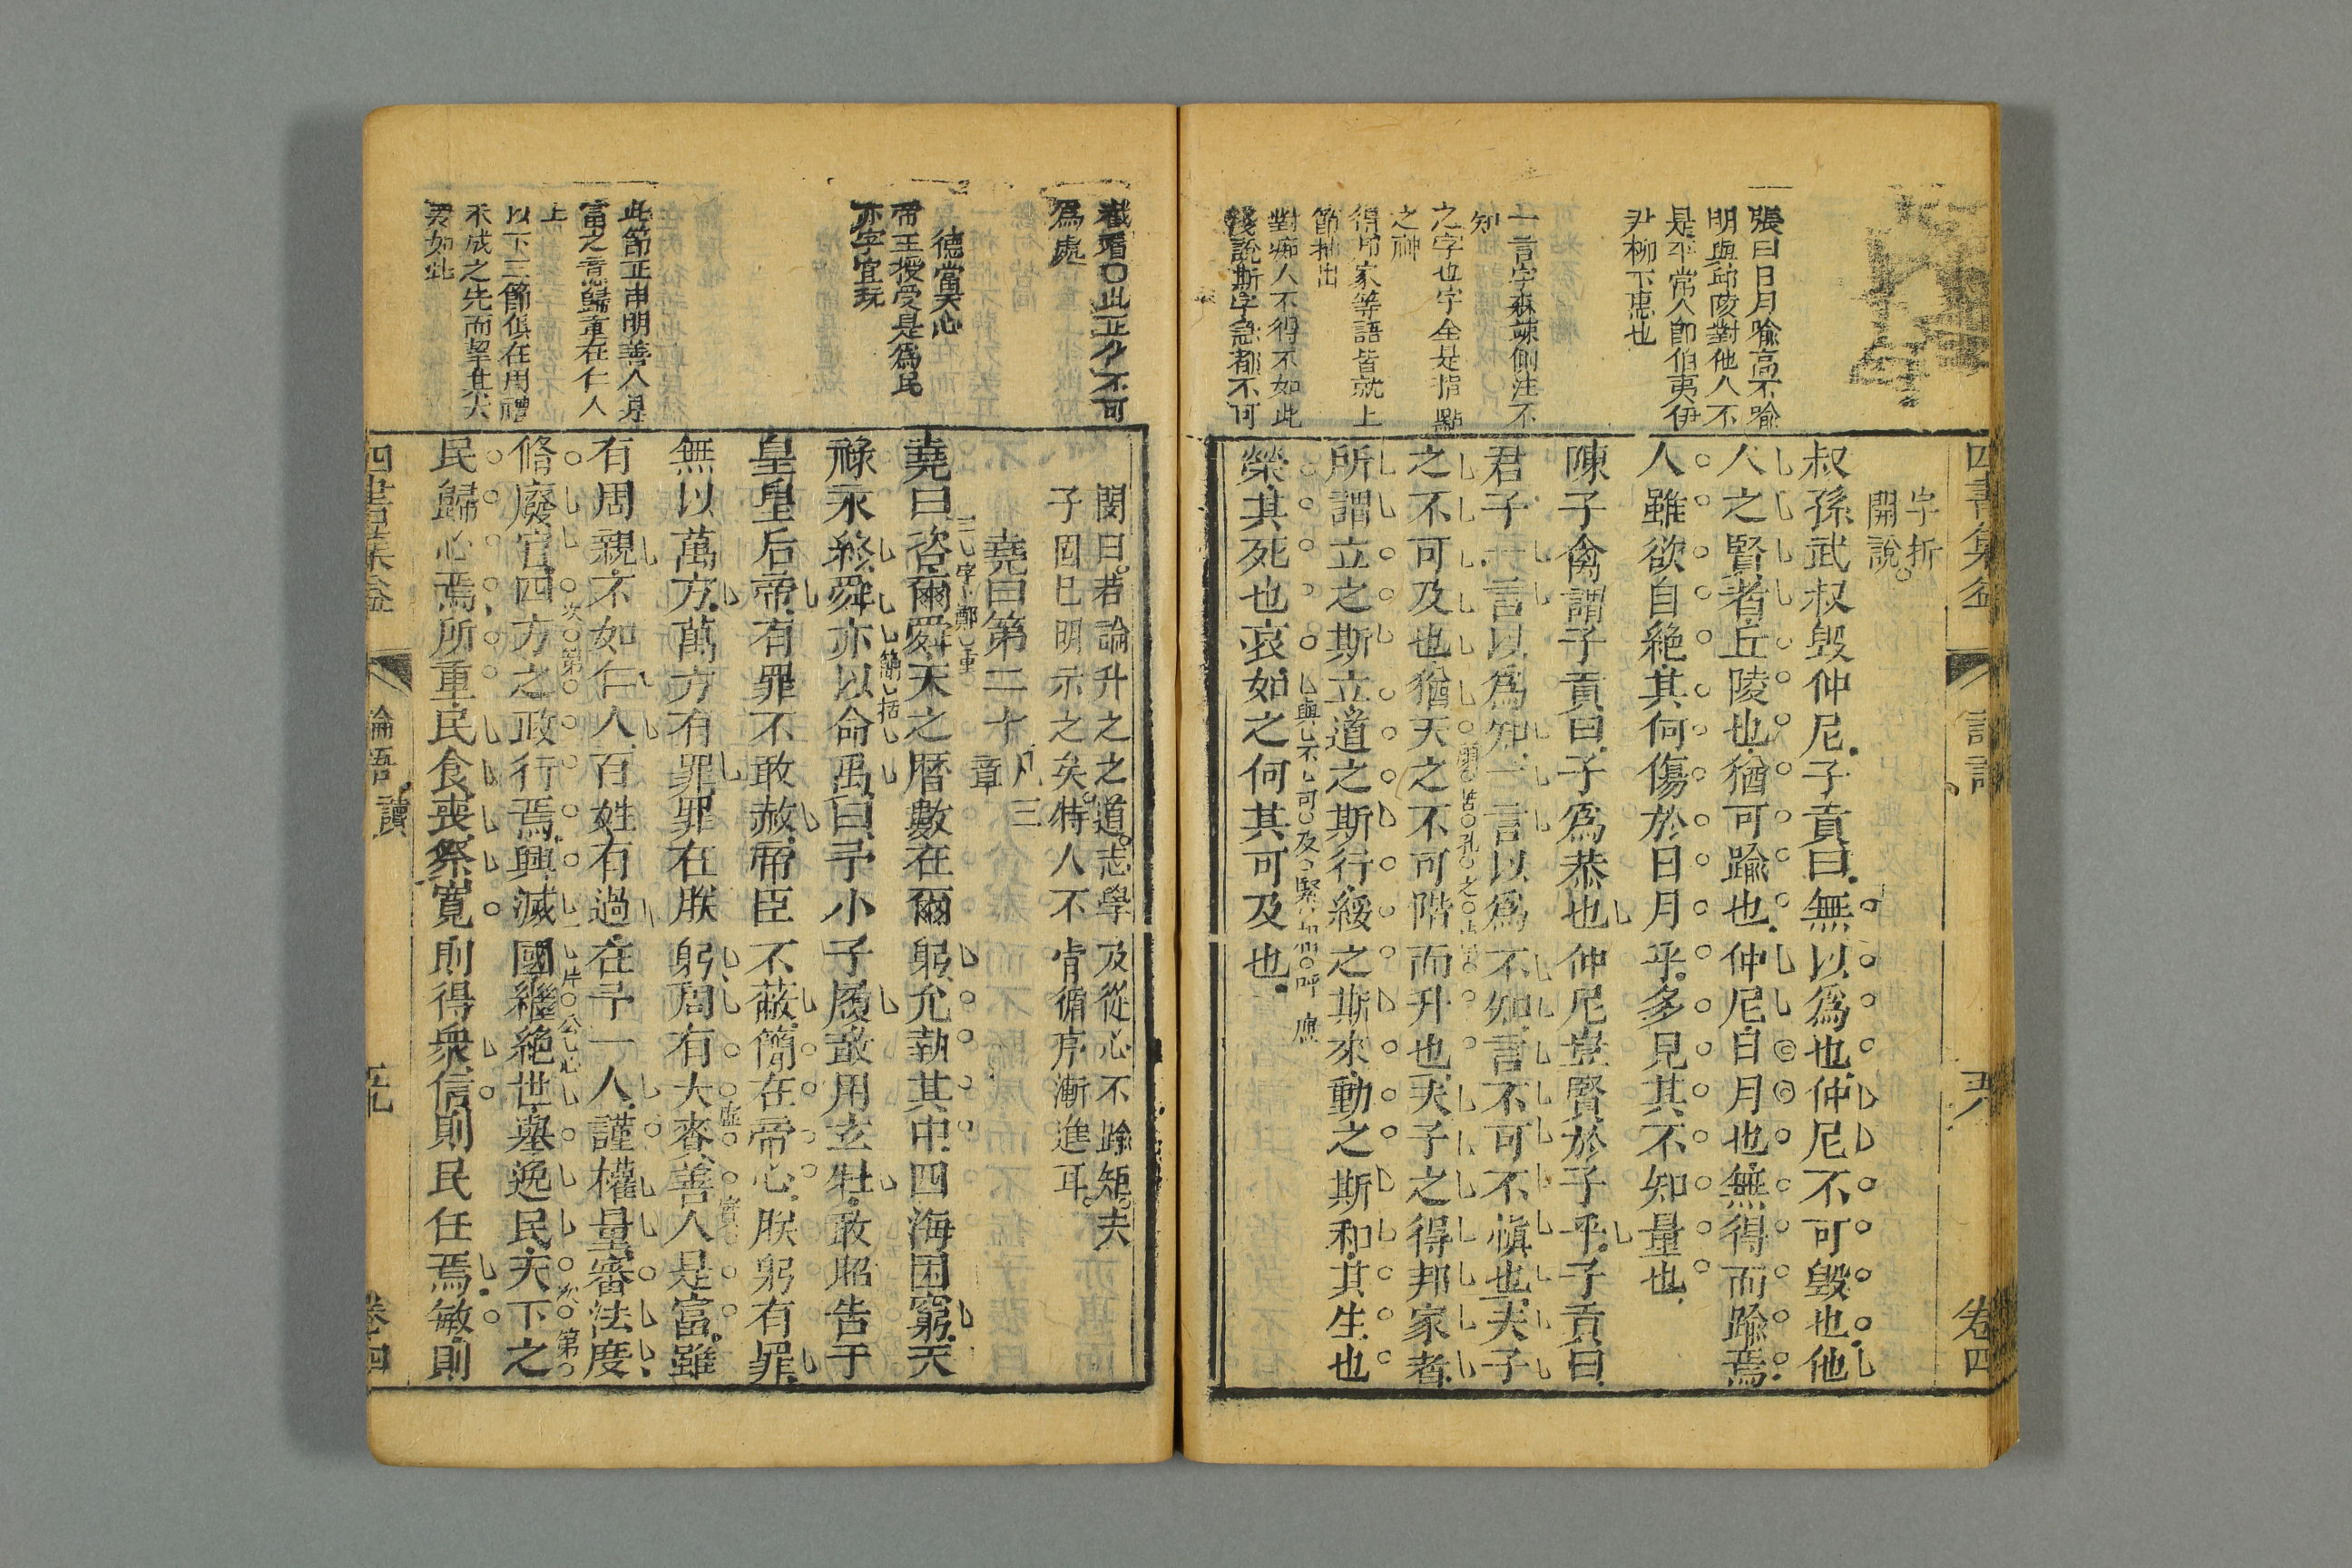 四書集益
卷四
張曰日月喻高不喻
明與邱陵對他人不
是平常人卽伯夷伊
尹柳下惠也
一言字森竦側注不
知
之字也字全是指點
之神
得邦家等語皆就上
節抽出
對痴人不得不如此
淺說斯字急都不可
字折
開說
叔孫武叔毀仲尼子貢曰無以爲也仲尼不可毀也他
人之賢者丘陵也猶可踰也仲尼日月也無得而踰焉
人雖欲自絕其何傷於日月乎多見其不知量也
陳子禽謂子貢曰子爲恭也仲尼豈賢於子乎子貢曰
君子一言以爲知一言以爲不知言不可不愼也夫子
之不可及也猶天之不可階而升也夫子之得邦家者
所謂立之斯立道之斯行綏之斯來動之斯和其生也
與不可及緊相呼應
榮其死也哀如之何其可及也
看〇此正夕不可
爲處
德當奧心
帝王授受是爲民
亦字宜玩
此節正申明善人是
富之意歸重在仁人
上
以下三節俱在周禮
未成之先而挈其大
要如此
閔曰若論升之之道志學及從心不踰矩夫
子固巳明示之矣特人不肯循序漸進耳
堯曰第二十 凡三章
三字鄭重
堯曰咨爾舜天之曆數在爾躬允執其中四海困窮天
簡括
祿永終舜亦以命禹曰予小子履敢用玄牡敢昭告于
皇皇后帝有罪不敢赦帝臣不蔽簡在帝心朕躬有罪
虛 實
無以萬方萬方有罪罪在朕躬周有大賚善人是富雖
有周親不如仁人百姓有過在予一人謹權量審法度
次第 一片公心 次第
脩廢官四方之政行焉興滅國繼絕世舉逸民天下之
民歸心焉所重民食喪祭寬則得衆信則民任焉敏則
四書集益
論語
讀
五九
卷四